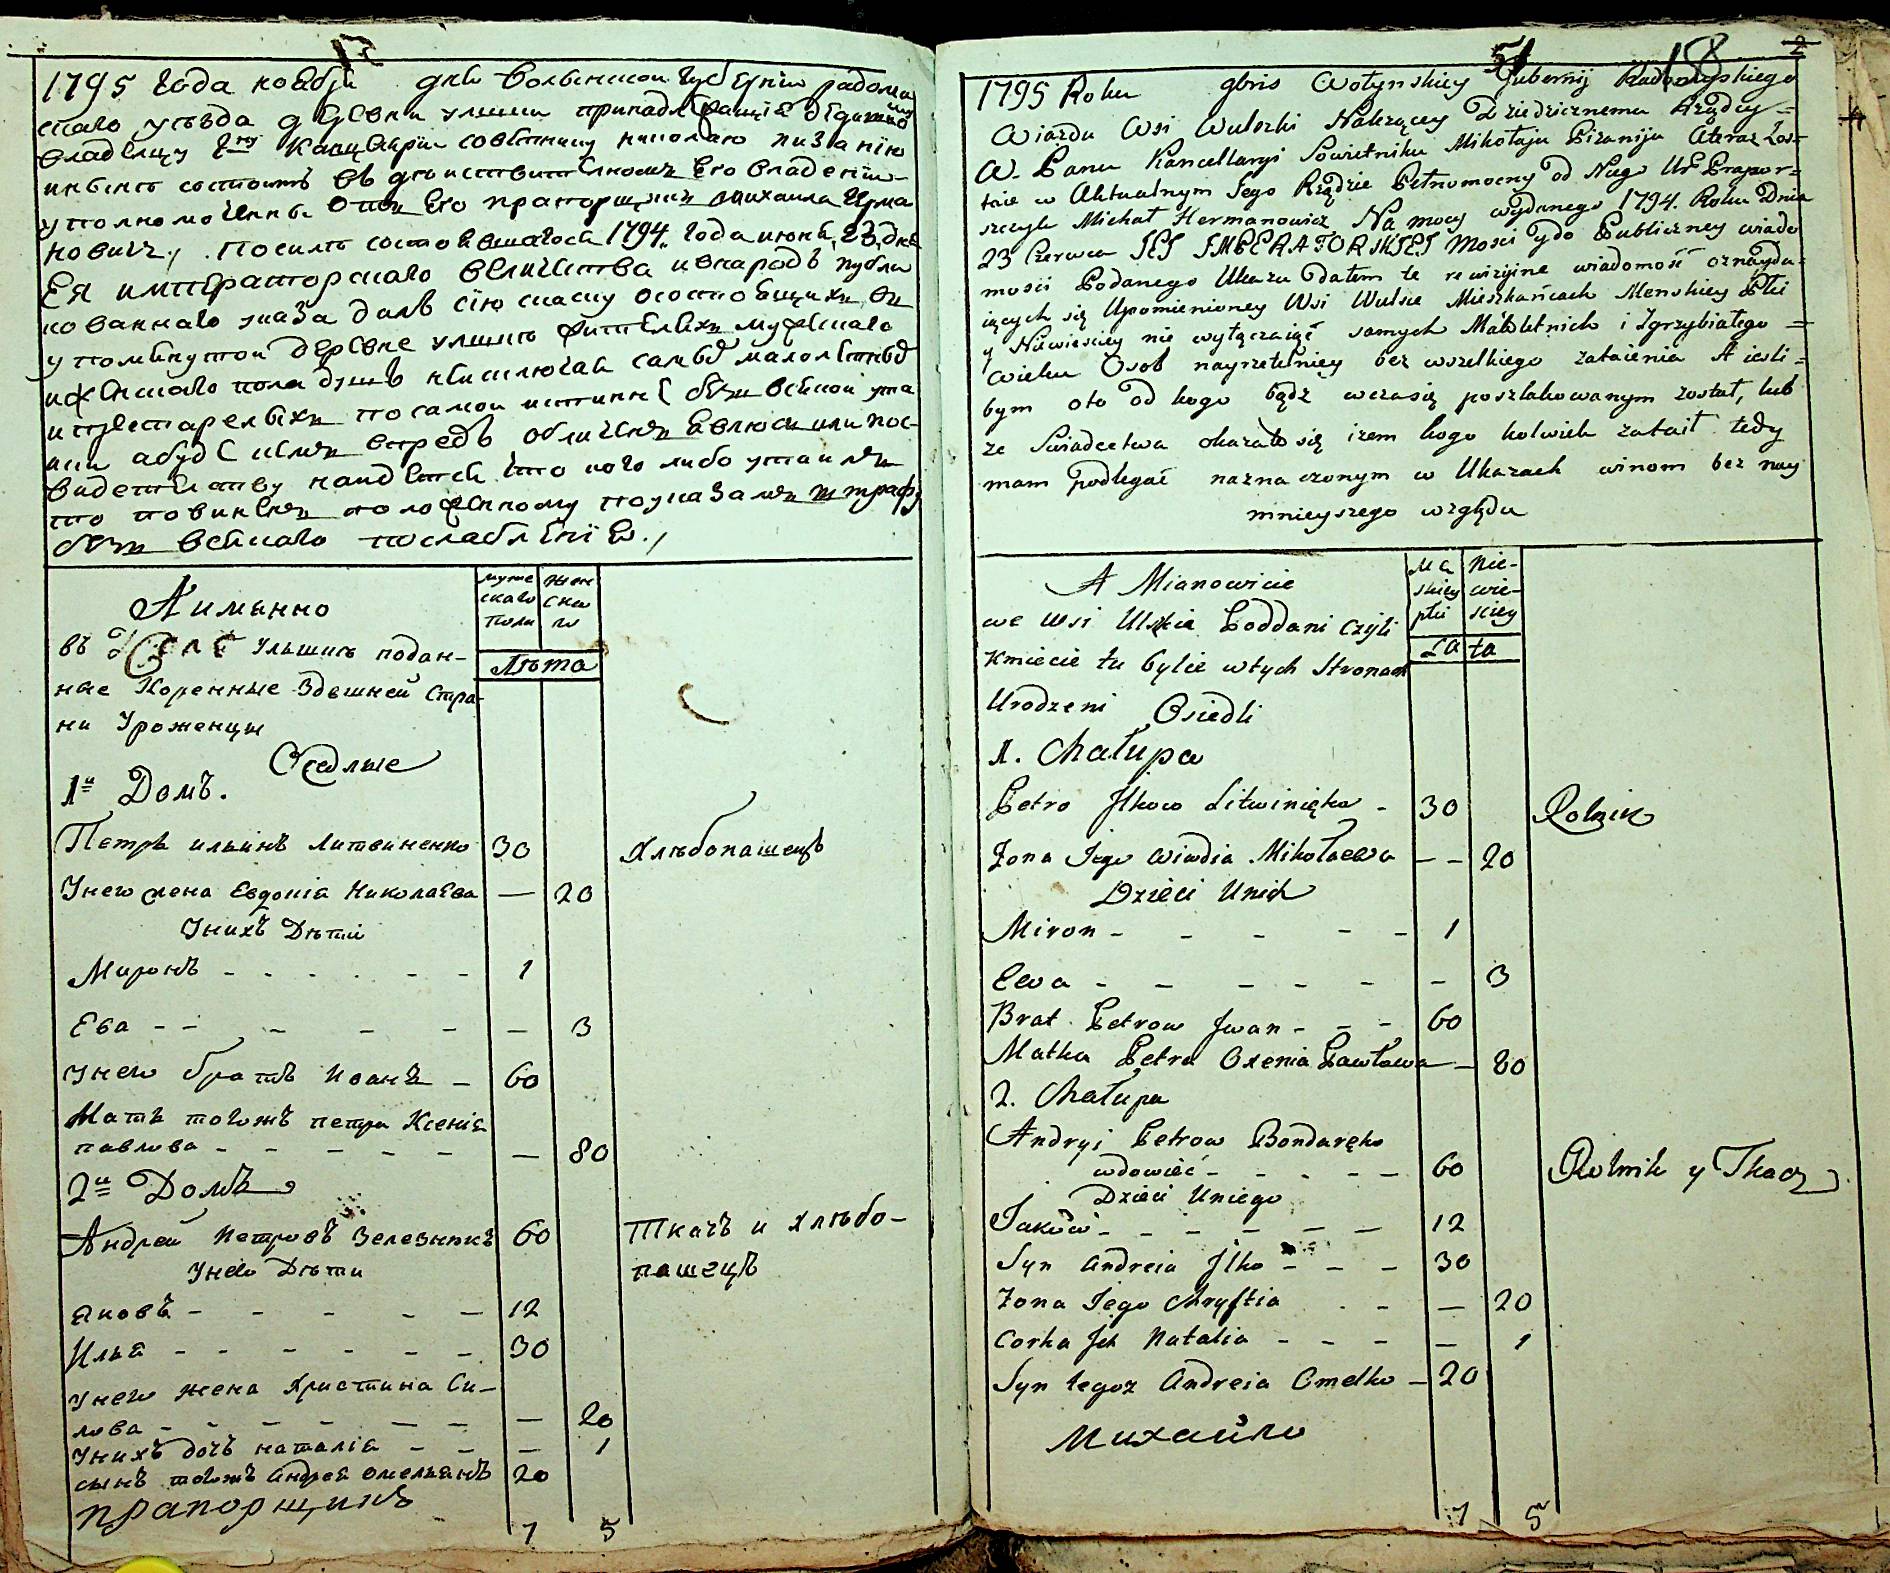 1795 года ноября дня волынской губернии радомы
скаго уезда деревни ульшки принадлежащие дедичному
владельцу г-ну Канцелярии советнику николаю пизанию
иныне состоитъ въ действительномъ его владении
уполномоченны отъ его прапорщикъ михаила Ерма
новичъ, посилъ состоявшагося 1794 года июня 23 дня
Ея императорскаго величества инародъ публи
кованнаго указа далъ сию скаску осостоящихъ въ
упомянутой деревне ульшке жителяхъ мужескаго
иженскаго пола душъ неисключая самых малолетных
ипрестарелыхъ по самой истинне безъ всякой ута
ики абуде кемъ впредь обличенъ явлюсь или пос
видетельству найдется что кого либо утаилъ
то повиненъ положенному поуказамъ штрафу
безъ всякаго послабления.
Аименно
мужескаго пола
женскаго
въ Селе Ульшке подан-
ные Коренные Здешней Стра-
ни Уроженцы
Лѣта
Оседлые
1й Домъ.
Петръ ильинъ Литвиненко 30 Хлѣбопашецъ
Унего жена Евдокія Николаева — 20
Унихъ Дѣти
Миронъ - - - - - - 1
Ева - - - - - - 3
Унего братъ Иванъ - 60
Мать тогожъ петра Ксенія
павлова - - - - - — 80
2й Домъ
Андрей Петровъ Зелезнякъ 60 Ткачъ и хлѣбо-
Унего Дѣти пашецъ
яковъ - - - - - 12
Илья - - - - - - 30
Унего жена Христина Си-
лова - - - - - - — 20
Унихъ дочъ наталіа - - — 1
сынъ тогожъ Андрея омельянъ 20
прапорщикъ
7 5
51 18 2
1795 Roku gbris Wołynskiey Gubernij Radomyskiego
Wiazdu Wsi Wulszki Należącey Dziedzicznemu Rządcy
W. Panu Kancellaryi Sowietniku Mikołaju Pizaniju Ateraz Zos-
taie w Aktualnym Jego Rządzie Pełnomocny od Niego Ur Prapor-
szczyk Michał Hermanowicz Na mocy wydanego 1794. Roku Dnia
23 Czerwca JEJ IMPERATORSKIEJ Mosci ydo Publiczney wiado
mosci Podanego Ukazu Datem te rewizyine wiadomość oznayda-
iących się Upomienioney Wsi Wulsce Mieszkańcach Menskiey Płci
y Niewiesciey nie wyłączaiąc samych Małoletnich i Zgrzybiałego
wieku Osob nayrzetelniey bez wszelkiego zataienia A iesli
bym oto od kogo bądź wczasię poszlakowanym został, lub
ze Swiadectwa okazało się izem kogo kolwiek zataił tedy
mam podlegać nazna czonym w Ukazach winom bez nay
mnieyszego względu
A Mianowicie
Mę skiey płci
Nie-wie-sciey
we wsi Ulskie Poddani Czyli
Lata
Kmiecie tu bylie wtych Stronach
Urodzeni Osiedli
1. Chałupa
Petro Ilkow Litwinięko - 30 Rolnik
Zona Iego Wiwdia Mikołaewa - - 20
Dzieci Unich
Miron - - - - - 1
Ewa - - - - - - 3
Brat Petrow Iwan - - - 60
Matka Petra Oxenia Pawłowa - 80
2. Chałupa
Andryi Petrow Bondaręko
wdowieć - - - - - 60 Rolnik y Tkacz
Dzieci Uniego
Iakow - - - - - - 12
Syn Andreia Ilko - - - 30
Zona Iego Chrystia - - — 20
Corka Ich Natalia - - - - — 1
Syn tegoz Andreia Omelko - 20
Михайло
7 5